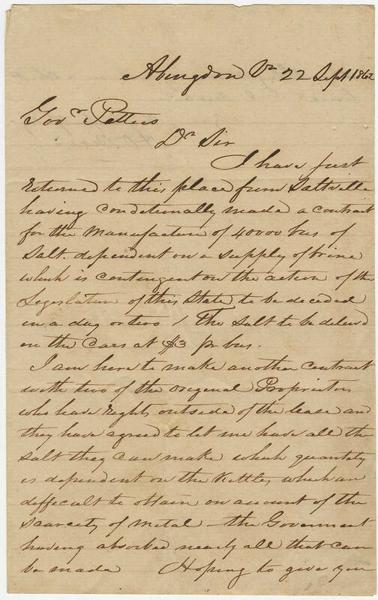 Abingdon Va 22 Sept 1862
Govr Pettus
Dr Sir
I have just
returned to this place from Saltville
having conditionally made a contract
for the Manufacture of 40000 bus of
Salt. dependent on a supply of brine
which is contingent on the action of the
Legislature of this State to be decided
in a day or two / The Salt to be delivd
on the Cars at $3 pr bus.
I am here to make another contract
with two of the original Proprietors
who have rights outside of the lease and
they have agreed to let me have all the
Salt they can make which quantity
is dependent on the Kettles which are
difficult to obtain on account of the
scarcity of metal - the Goverment
having absorbed nearly all that can
be made Hoping to give you